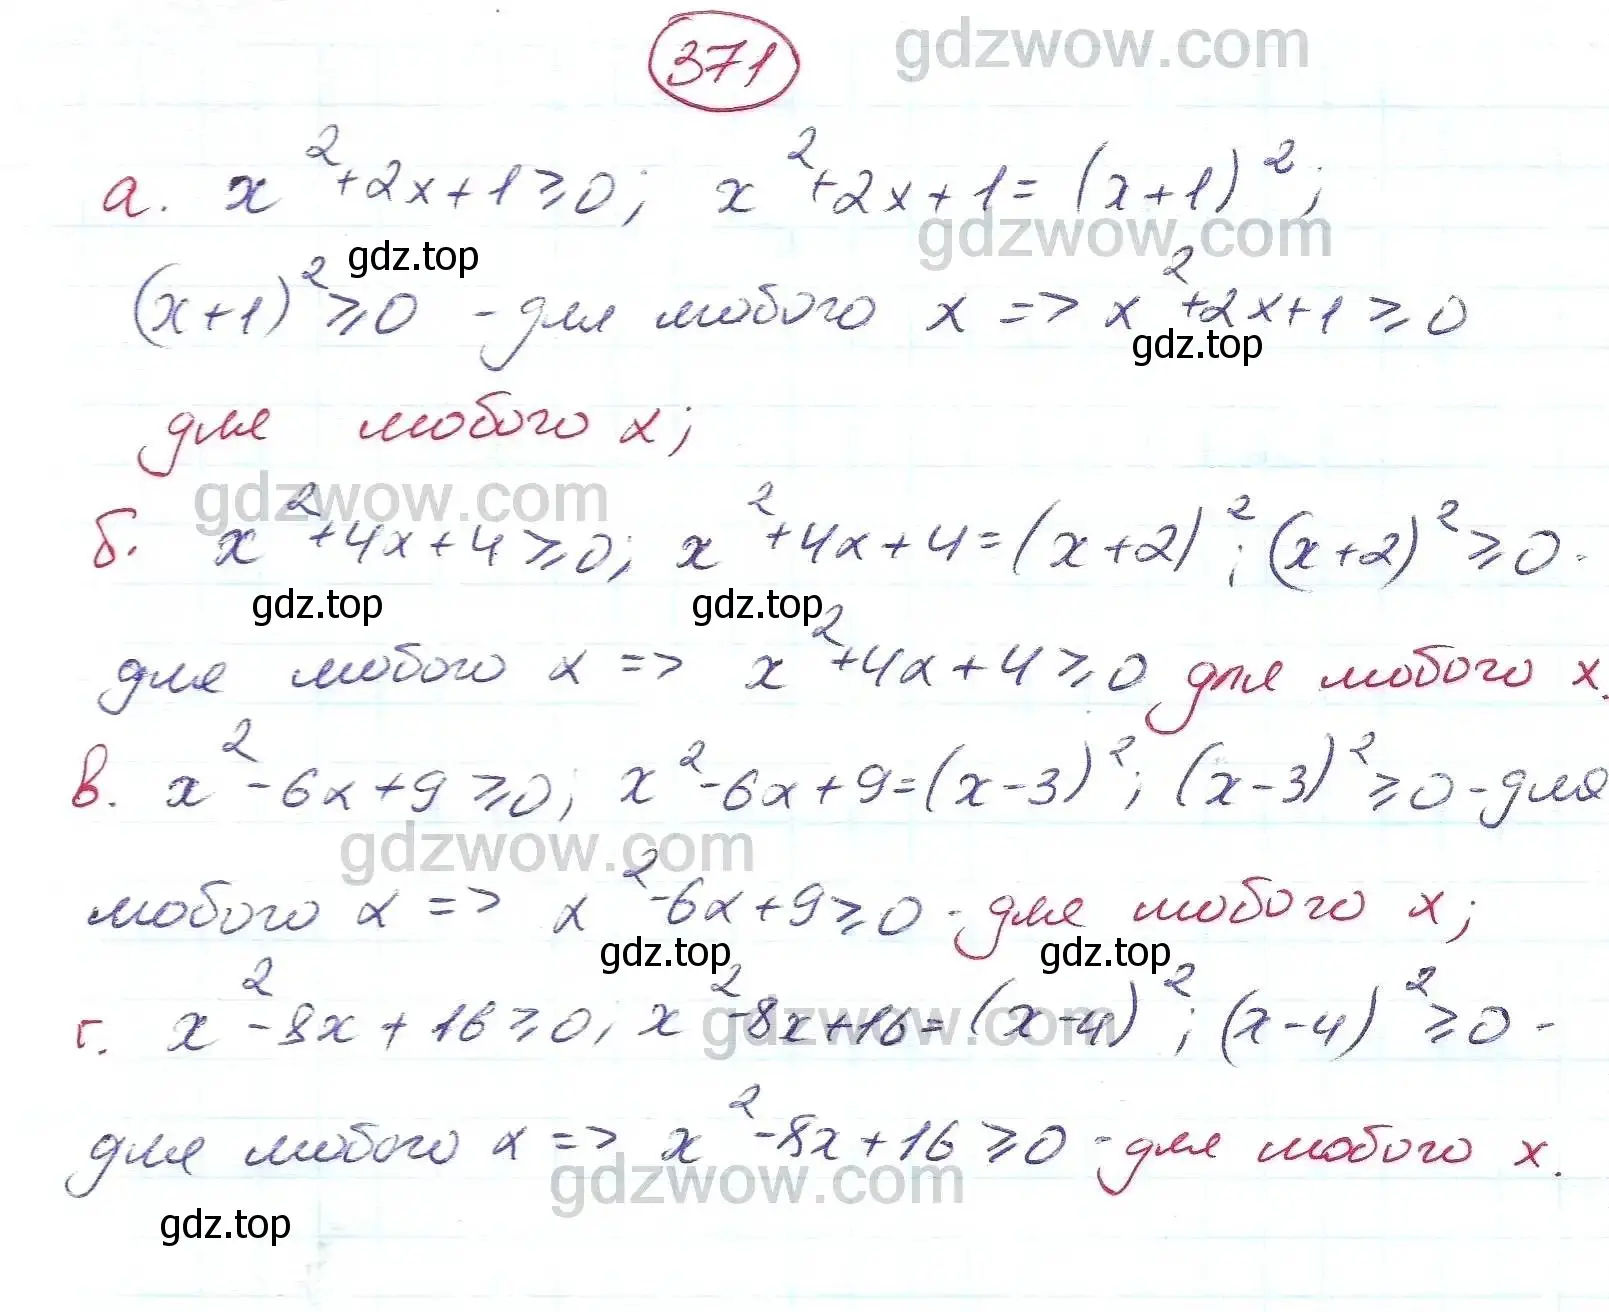 371 gdzwow.com
а. x²+2x+1≥0; x²+2x+1=(x+1)²;
gdz.top gdzwow.com
(x+1)²≥0 - для любого x => x²+2x+1≥0
gdz.top
для любого x;
gdzwow.com
б. x²+4x+4≥0; x²+4x+4=(x+2)²; (x+2)²≥0-
gdz.top gdz.top
для любого x => x²+4x+4≥0 для любого x.
в. x²-6x+9≥0; x²-6x+9=(x-3)²; (x-3)²≥0-для
gdzwow.com
любого x => x²-6x+9≥0-для любого x;
gdz.top gdz.top
г. x²-8x+16≥0, x²-8x+16=(x-4)²; (x-4)²≥0-
gdzwow.com
для любого x => x²-8x+16≥0-для любого x.
gdzwow.com
gdz.top